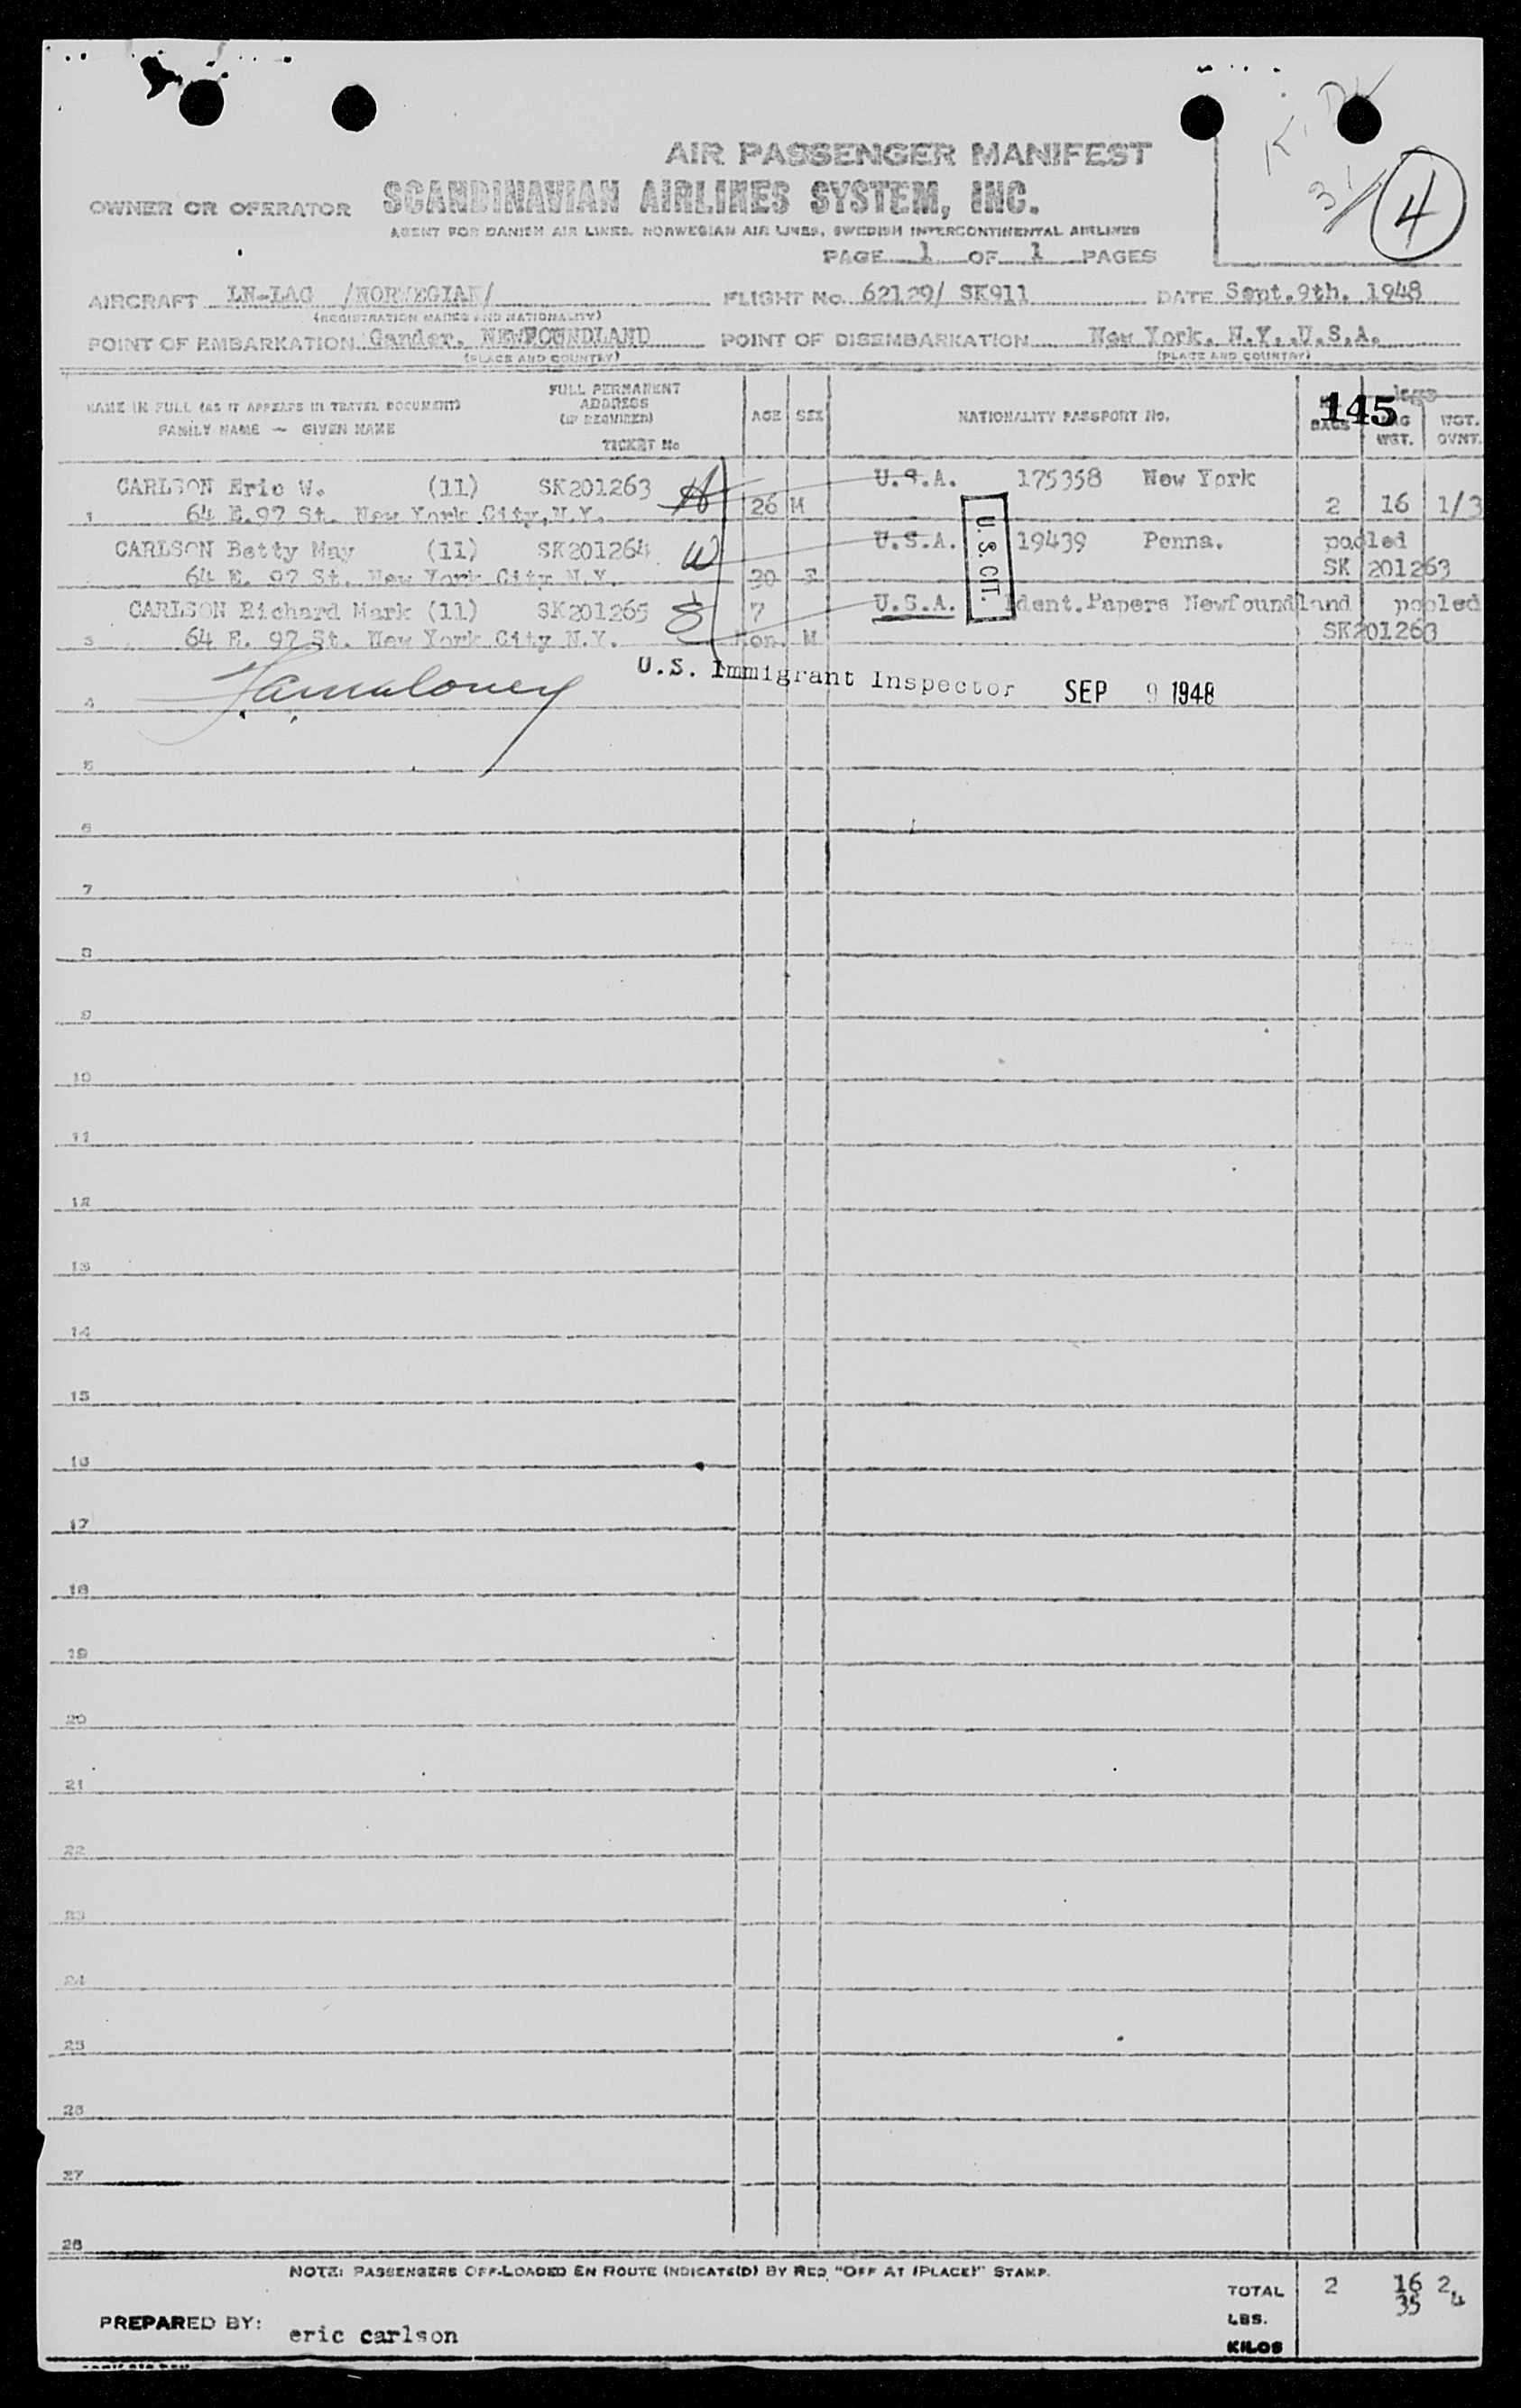 AIR PASSENGER MANIFEST
OWNER OR OPERATOR SCANDINAVIAN AIRLINES SYSTEM, INC.
AGENT FOR DANISH AIR LINES, NORWEGIAN AIR LINES, SWEDISH INTERCONTINENTAL AIRLINES
4
PAGE 1 OF 1 PAGES
AIRCRAFT LN-LAG /NORWEGIAN/ FLIGHT No. 62129/ SK911 DATE Sept.9th. 1948
(REGISTRATION MARKS AND NATIONALITY)
POINT OF EMBARKATION Gander. NEWFOUNDLAND POINT OF DISEMBARKATION New York. N.Y..U.S.A.
(PLACE AND COUNTRY) (PLACE AND COUNTRY)
NAME IN FULL (AS IT APPEARS IN TRAVEL DOCUMENT)
FAMILY NAME — GIVEN NAME
FULL PERMANENT
ADDRESS
(IF REQUIRED)
TICKET No
AGE SEX NATIONALITY PASSPORT No. BAGS WGT. WGT. OVNT.
145
CARLSON Eric W. (11) SK201263 U.S.A. 175358 New York
1 64 E.97 St. New York City,N.Y. 26 M 2 16 1/3
CARLSON Betty May (11) SK201264 W U.S.A. 19439 Penna. pooled
64 E. 97 St. New York City N.Y. 30 F SK 201263
U.S. CIT.
CARLSON Richard Mark (11) SK201265 7 U.S.A. Ident.Papers Newfoundland pooled
3 64 E. 97 St. New York City N.Y. mon. M SK201263
U.S. Immigrant Inspector SEP 9 1948
4
5
6
7
8
9
10
11
12
13
14
15
16
17
18
19
20
21
22
23
24
25
26
27
28
NOTE: PASSENGERS OFF-LOADED EN ROUTE INDICATE(D) BY RED "OFF AT (PLACE)" STAMP.
TOTAL 2 16 2
35 4
LBS.
KILOS
PREPARED BY: eric carlson